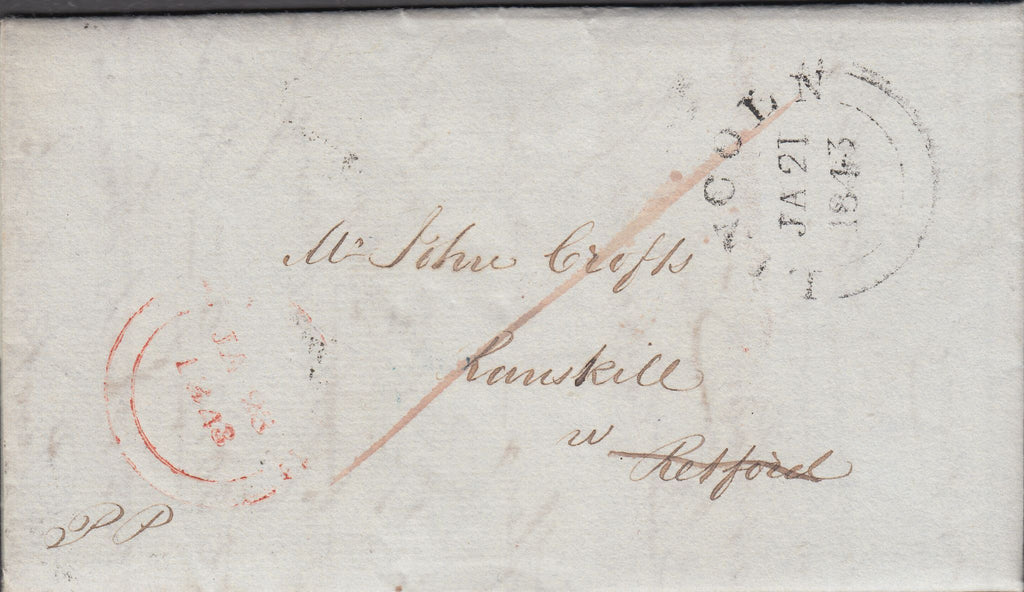 LINCOLN
JA 21
1843
Mr John Crofts
Ranskill
w
Retford
JA 23
1843